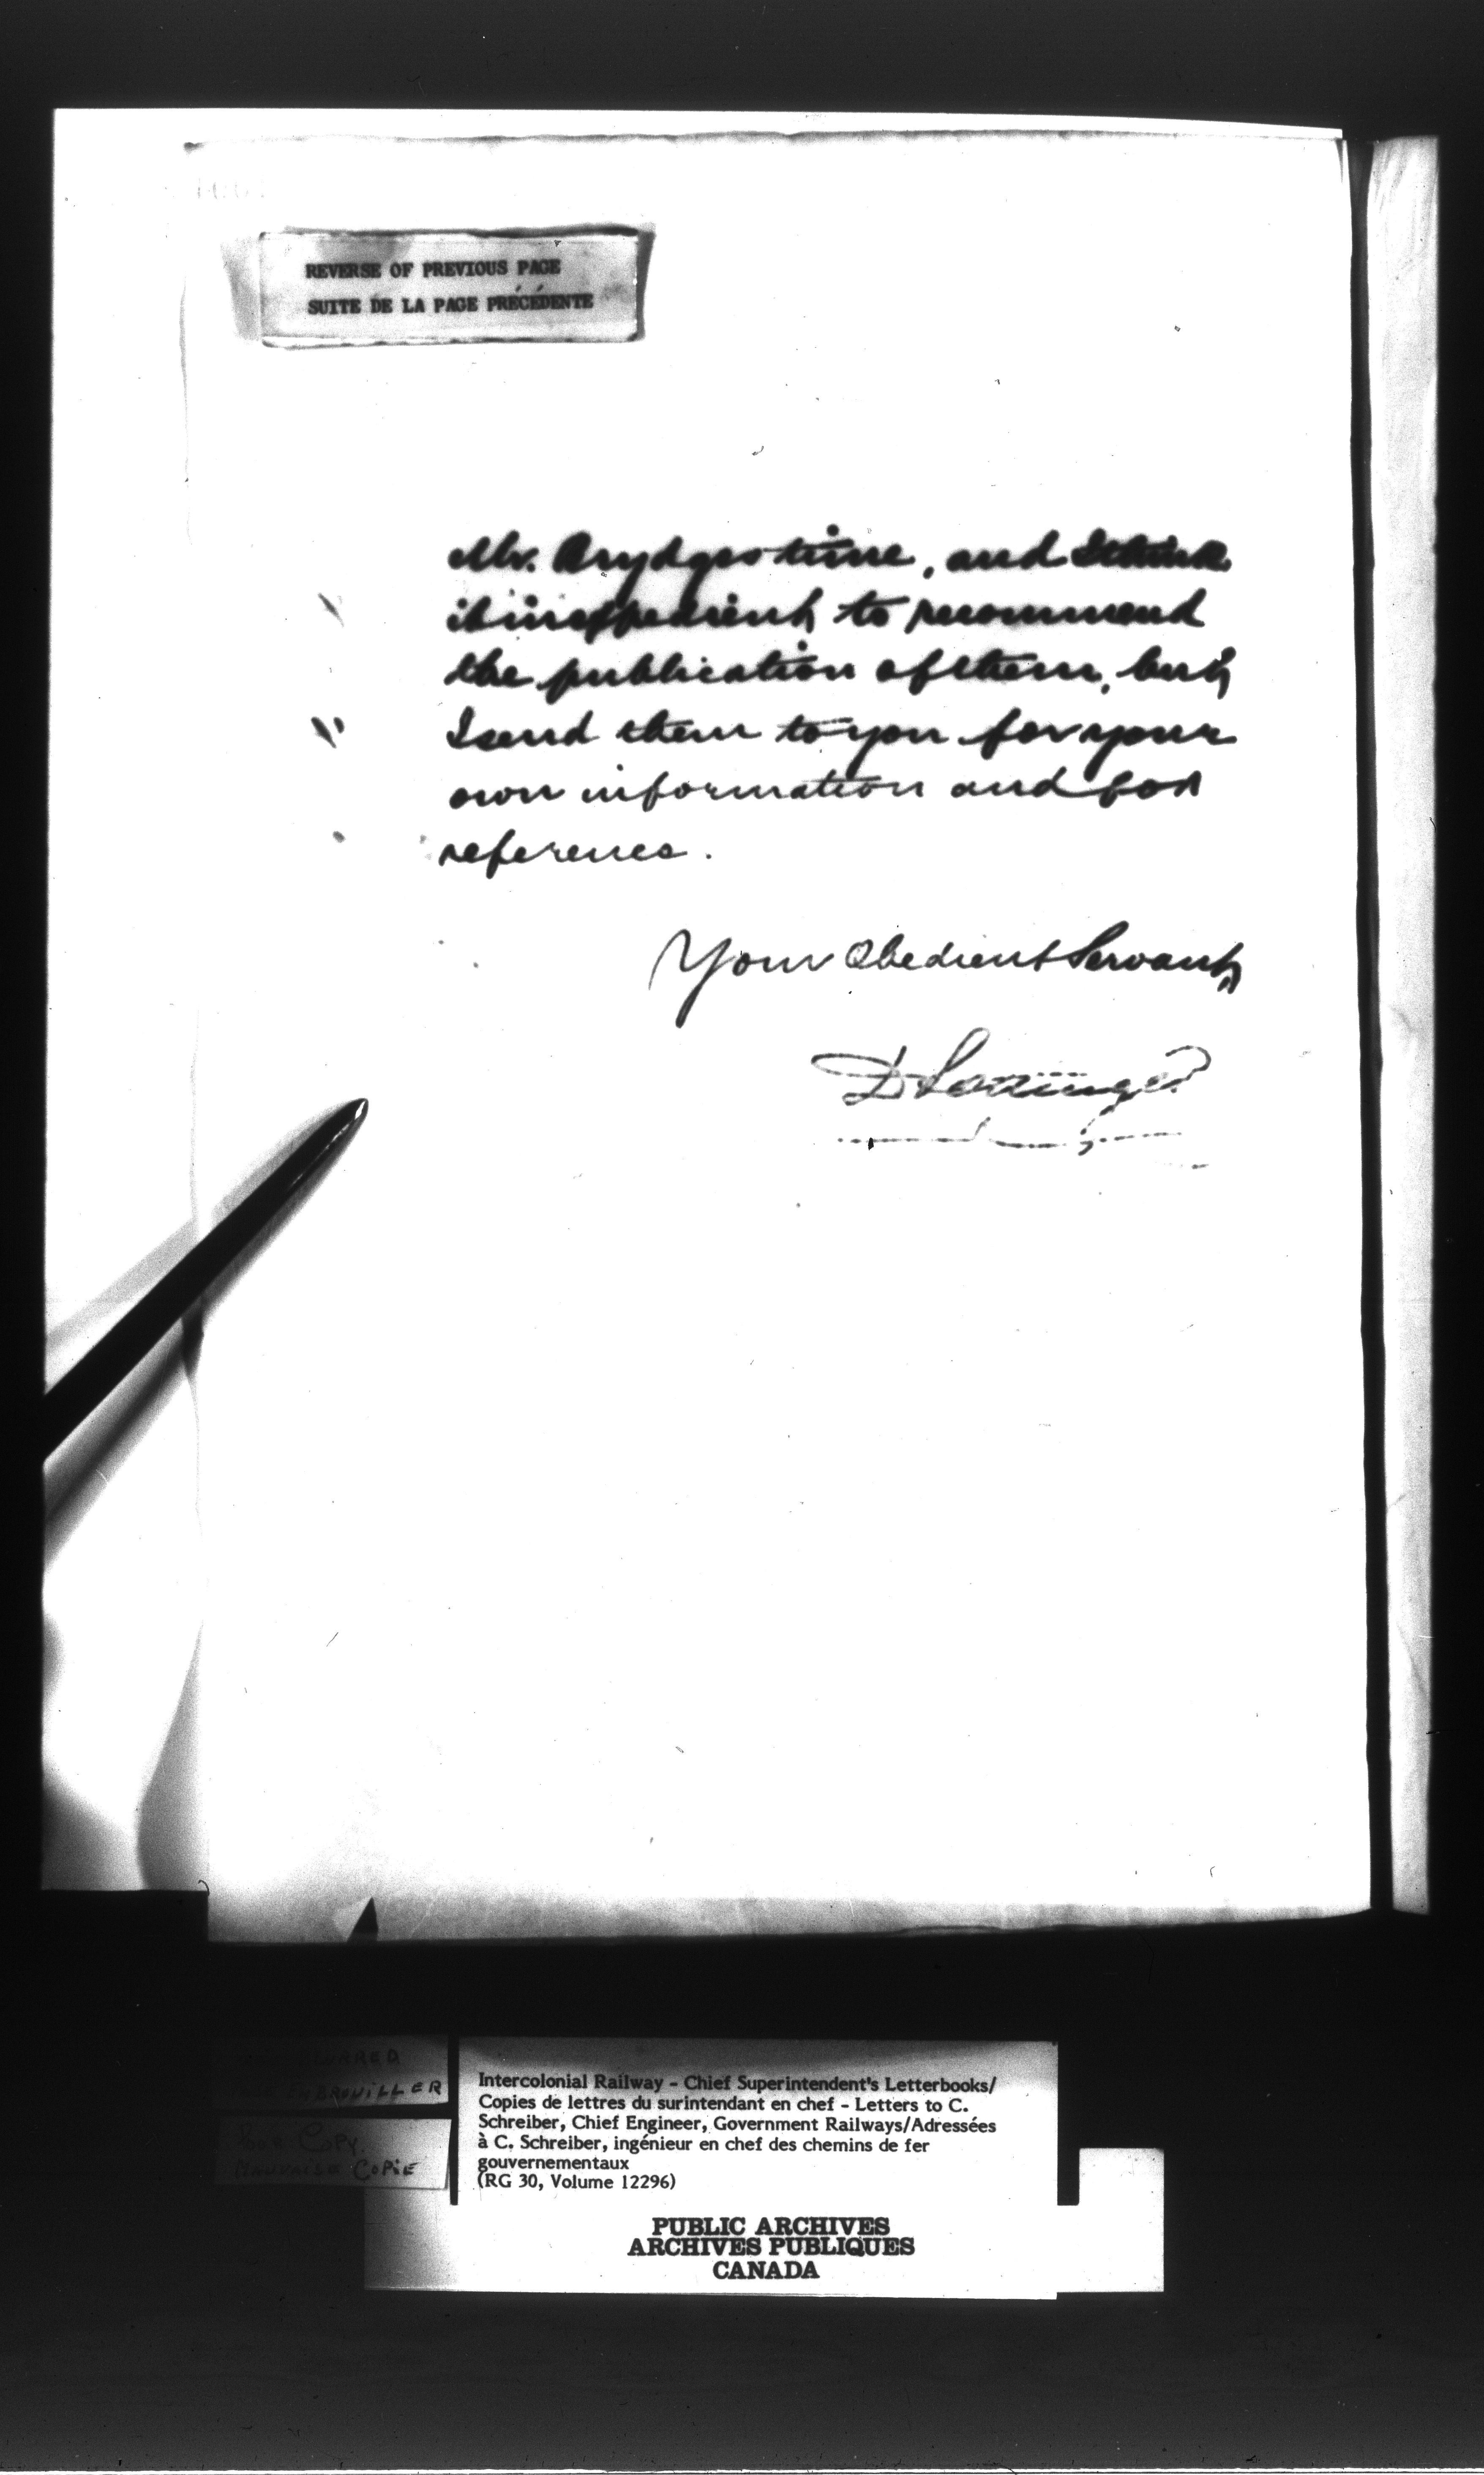 REVERSE OF PREVIOUS PAGE
SUITE DE LA PAGE PRÉCÉDENTE
Mr. Brydges time, and I think
it inexpedient to recommend
the publication of them, but
I send them to you for your
own information and for
reference.
Your Obedient Servant,
D Pottinger
BLURRED
EMBROUILLER
POOR COPY
MAUVAISE COPIE
Intercolonial Railway - Chief Superintendent's Letterbooks/
Copies de lettres du surintendant en chef - Letters to C.
Schreiber, Chief Engineer, Government Railways/Adressées
à C. Schreiber, ingénieur en chef des chemins de fer
gouvernementaux
(RG 30, Volume 12296)
PUBLIC ARCHIVES
ARCHIVES PUBLIQUES
CANADA